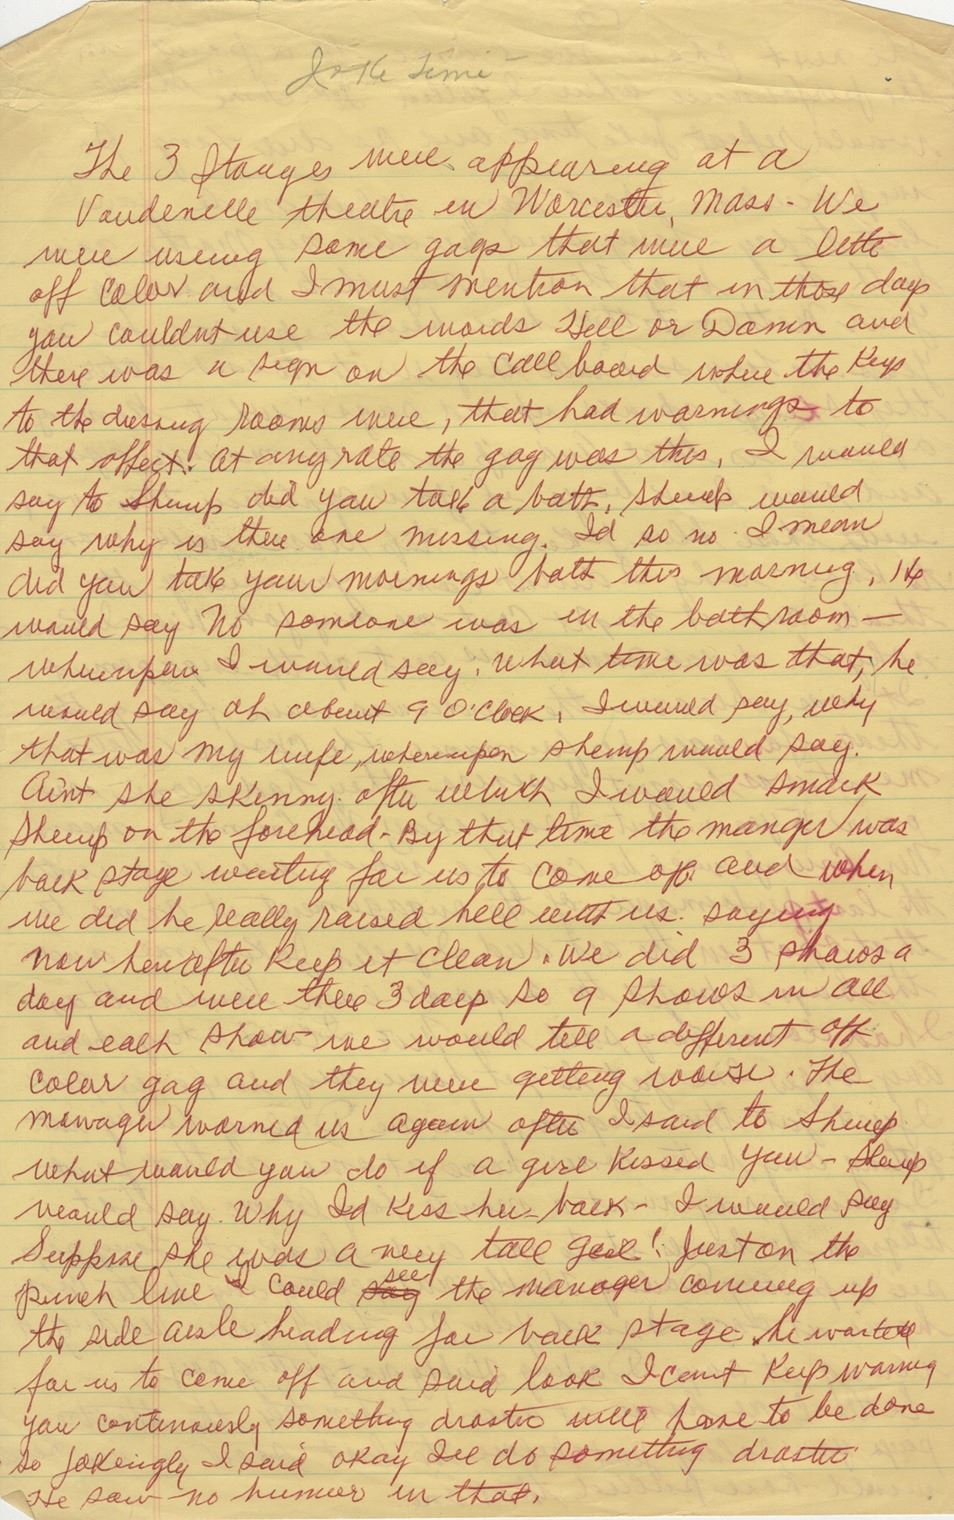 Joke Time
The 3 Stooges were appearing at a
Vaudeville theatre in Worcester, Mass. We
were using some gags that were a little
off color and I must mention that in those days
you couldnt use the words Hell or Damn and
there was a sign on the call board where the keys
to the dressing rooms were, that had warnings to
that effect. At any rate the gag was this, I would
say to Shemp did you take a bath, Shemp would
say why is there one missing. I'd so no I mean
did you take your mornings bath this morning, He
would say No someone was in the bathroom —
whereupon I would say, what time was that, he
would say oh about 9 O'Clock, I would say, why
that was my wife, whereupon Shemp would say.
Ain't she skinny. after which I would smack
Shemp on the forehead - By that time the manger was
back stage waiting for us to come off and when
we did he really raised hell with us. saying
now hereafter keep it clean. We did 3 shows a
day and were there 3 days so 9 shows in all
and each show we would tell a different off
color gag and they were getting worse. The
manager warned us again after I said to Shemp
what would you do if a girl kissed you - Shemp
would say. Why I'd kiss her back - I would say
Suppose she was a very tall girl! Just on the
punch line I could see the manager coming up
the side aisle heading for back stage. he waited
for us to come off and said look I can't keep warning
you continously something drastic will have to be done
so jokingly I said okay I'll do something drastic
He saw no humor in that.